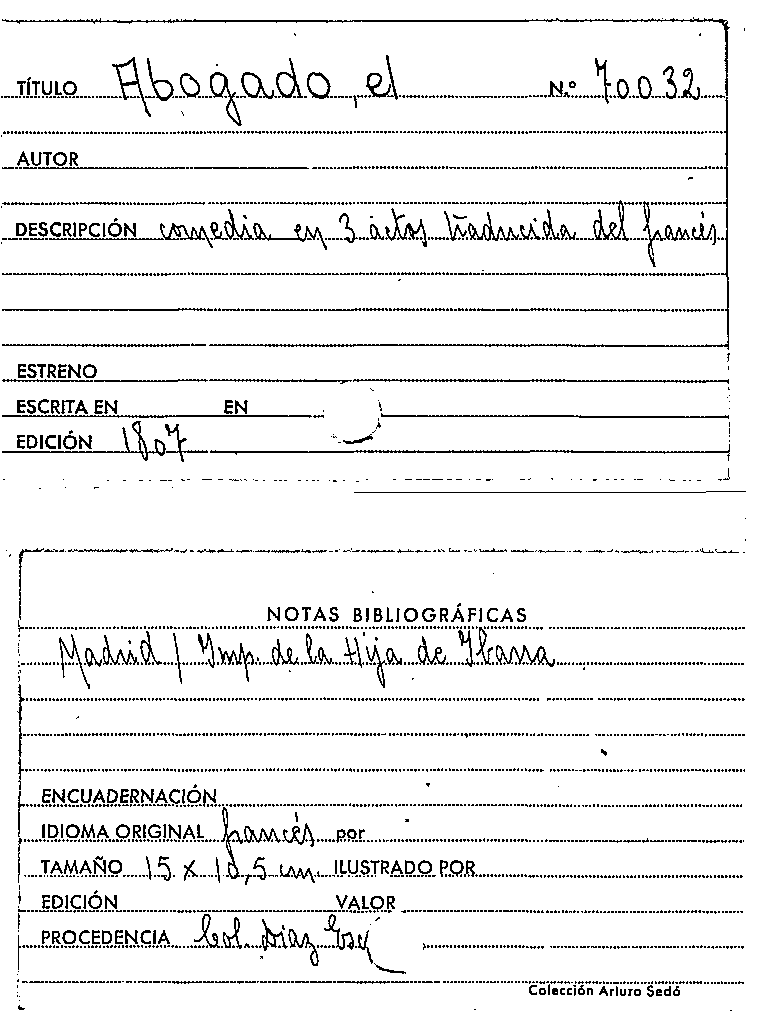 TÍTULO Abogado, el N.º 70032
AUTOR
DESCRIPCIÓN comedia en 3 actos traducida del francés
ESTRENO
ESCRITA EN EN
EDICIÓN 1807
NOTAS BIBLIOGRÁFICAS
Madrid / Imp. de la Hija de Ibarra
ENCUADERNACIÓN
IDIOMA ORIGINAL francés por
TAMAÑO 15 x 10,5 cm. ILUSTRADO POR
EDICIÓN VALOR
PROCEDENCIA Col. Díaz
Colección Arturo Sedó